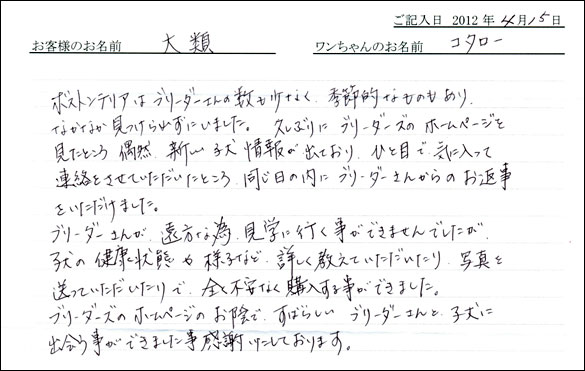 ご記入日 2012年 4月15日
お客様のお名前 大類 ワンちゃんのお名前 コタロー
ボストンテリアはブリーダーさんの数も少なく、季節的なものもあり、
なかなか見つけられずにいました。久しぶりにブリーダーズのホームページを
見たところ 偶然、新しい子犬情報が出ており、ひと目で気に入って
連絡をさせていただいたところ、同じ日の内にブリーダーさんからのお返事
をいただけました。
ブリーダーさんが、遠方な為、見学に行く事ができませんでしたが、
子犬の健康状態や様子など、詳しく教えていただいたり、写真を
送っていただいたりで、全く不安なく購入する事ができました。
ブリーダーズのホームページのお陰で、すばらしいブリーダーさんと、子犬に
出会う事ができました事感謝いたしております。